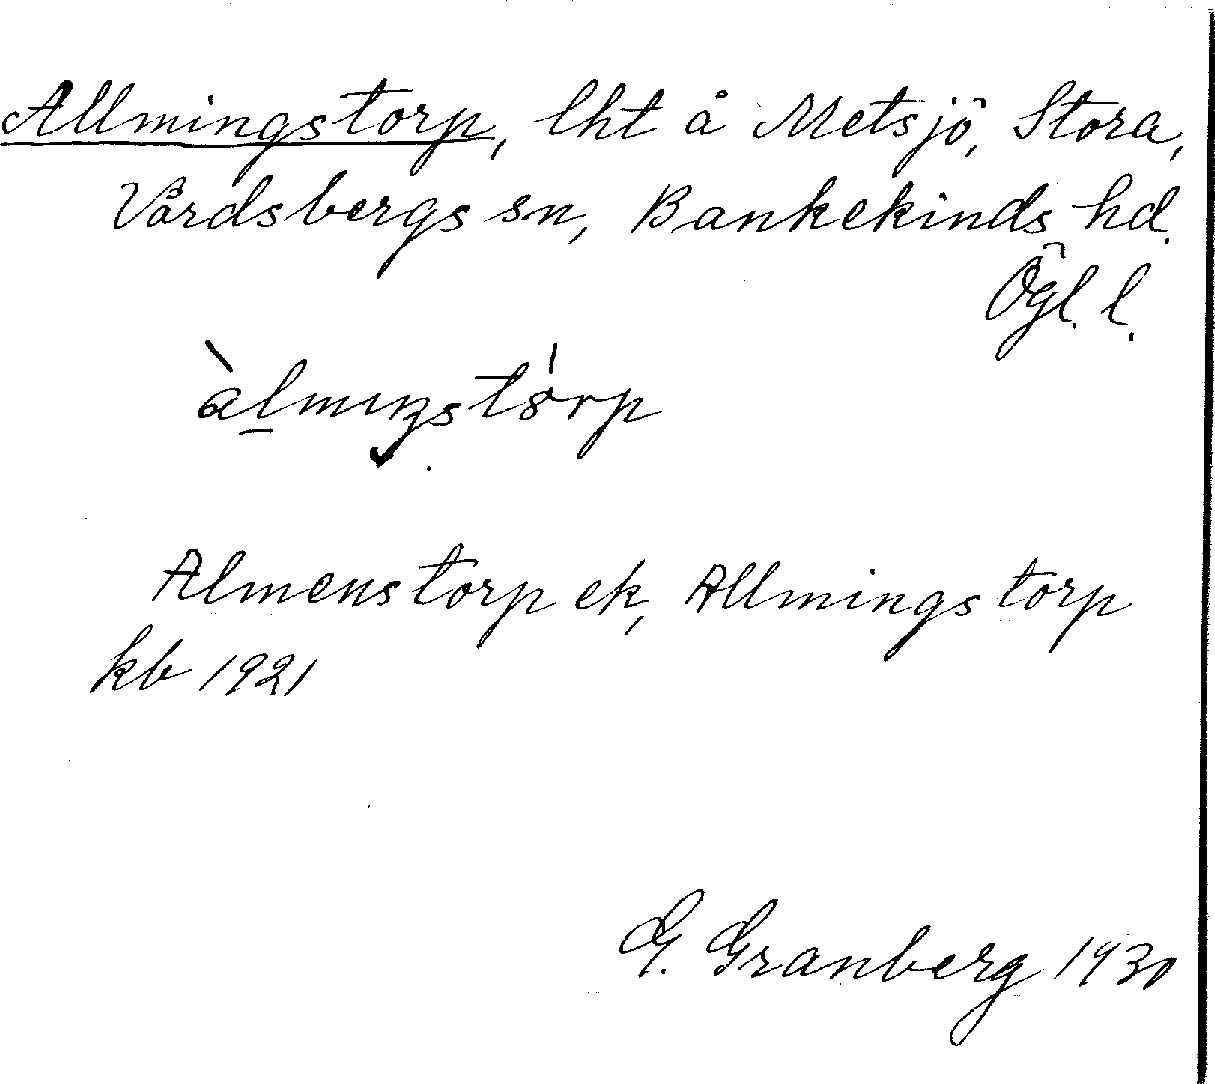 Allmingstorp, lht å Metsjö, Stora,
Vårdsbergs sn, Bankekinds hd.
Ögl. l.
àlmıŋstȯ́rp
Almenstorp ek, Allmingstorp
kb 1921
G. Granberg 1930